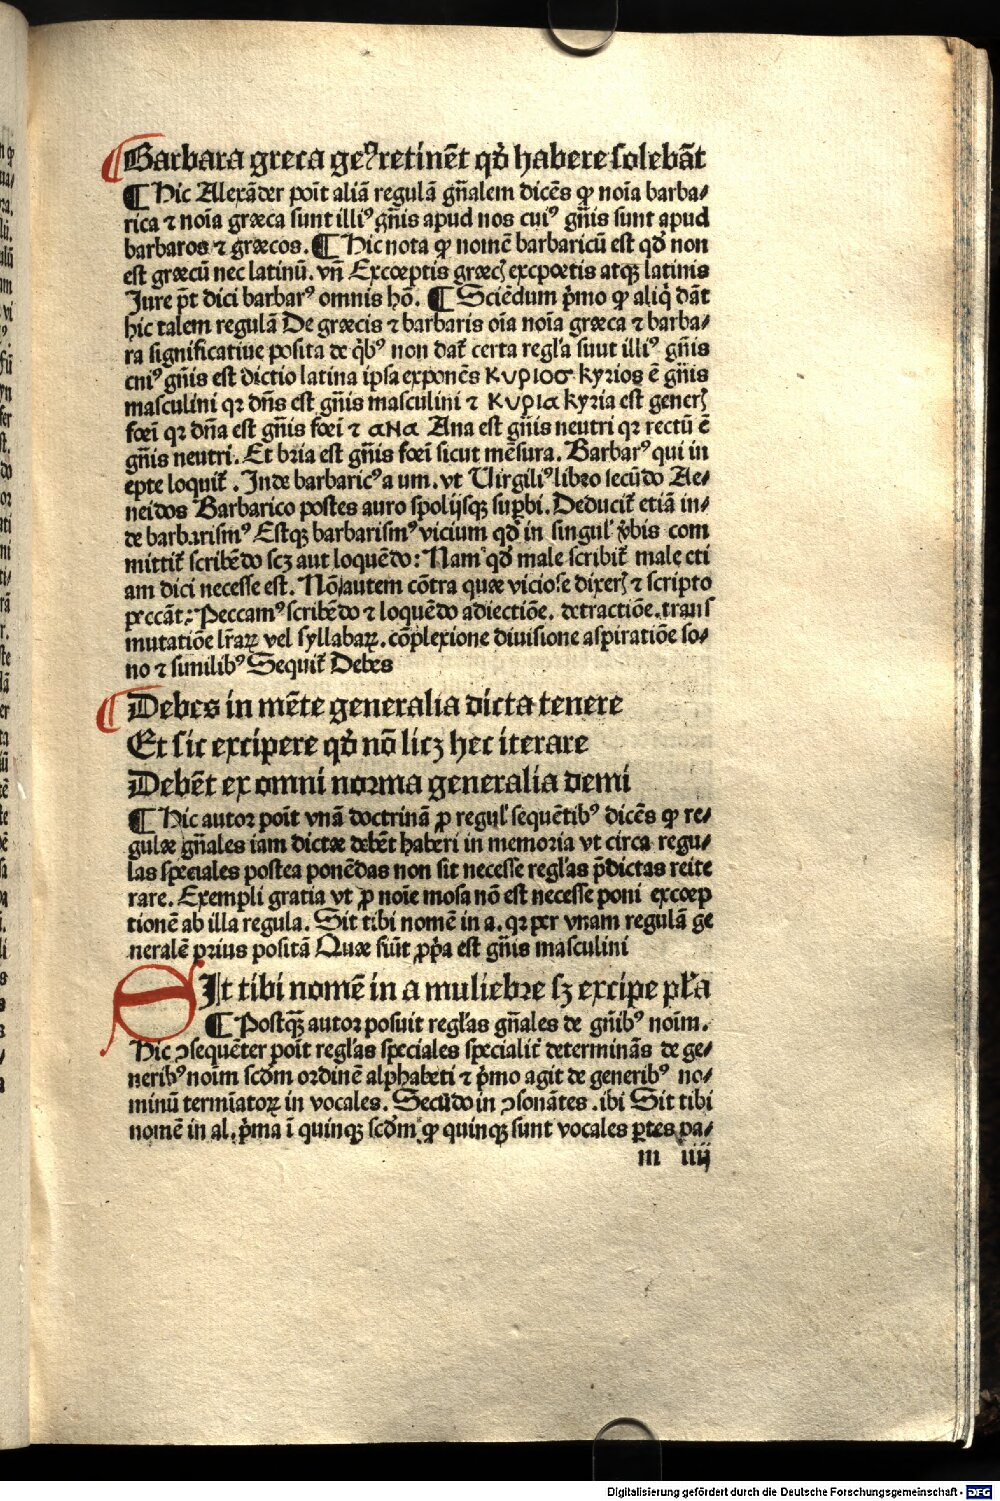 Barbara greca geꝰ retinēt qď habere solebāt
¶ Hic Alexāder poīt aliā regulā gn̄alem dicēs ꝙ noīa barba⸗
rica ⁊ noīa græca sunt illiꝰ gn̄is apud nos cuiꝰ gn̄is sunt apud
barbaros ⁊ græcos. ¶ Hic nota ꝙ nomē barbaricū est qď non
est græcū nec latinū. vn̄ Exceptis græcꝭ excpoetis atqꝫ latinis
Jure p̄t dici barbarꝰ omnis hō. ¶ Sciēdum p̄mo ꝙ aliq̇ dāt
hic talem regulā De græcis ⁊ barbaris oīa noīa græca ⁊ barba⸗
ra significatiue posita de q̇bꝰ non dat̄ certa regl'a sunt illiꝰ gn̄is
cniꝰ gn̄is est dictio latina ipsa exponēs ΚΥΡΙΟΣ kyrios ē gn̄is
masculini qꝛ dn̄s est gn̄is masculini ⁊ ΚΥΡΙΑ kyria est generꝭ
foeī qꝛ dn̄a est gn̄is foeī ⁊ ΑΝΑ Ana est gn̄is neutri qꝛ rectū ē
gn̄is neutri. Et bria est gn̄is foeī sicut mēsura. Barbarꝰ qui in
epte loquit̄. Inde barbaricꝰ a um. vt Virgiliꝰ libro secūdo Ae⸗
neidos Barbarico postes auro spolijsqꝫ sup̱bi. Deducit̄ etiā in⸗
de barbarismꝰ Estqꝫ barbarismꝰ vicium qď in singul' v̇bis com
mittit̄ scribēdo scꝫ aut loquēdo: Nam qď male scribit̄ male eti
am dici necesse est. Nō autem cōtra quæ viciose dixerꝭ ⁊ scripto
peccāt: Peccamꝰ scribēdo ⁊ loquēdo adiectiōe. detractiōe. trans
mutatiōe lr̄aꝝ vel syllabaꝝ. cōplexione diuisione aspiratiōe so⸗
no ⁊ similibꝰ Sequit̄ Debes
Debes in mēte generalia dicta tenere
Et sic excipere qď nō licꝫ hec iterare
Debēt ex omni norma generalia demi
¶ Hic autor poīt vnā doctrinā ꝓ regul' sequētibꝰ dicēs ꝙ re⸗
gulæ gn̄ales iam dictæ debēt haberi in memoria vt circa regu⸗
las speciales postea ponēdas non sit necesse regl'as p̄dictas reite
rare. Exempli gratia vt ꝓ noīe mosa nō est necesse poni excoep
tionē ab illa regula. Sit tibi nomē in a. qꝛ per vnam regulā ge
neralē prius positā Quæ siūt ꝓp̄a est gn̄is masculini
SIt tibi nomē in a muliebre sꝫ excipe pl'a
¶ Postq̄ꝫ autor posuit regl'as gn̄ales de gn̄ibꝰ noīm.
Hic ꝯsequēter poīt regl'as speciales specialit̄ determinās de ge⸗
neribꝰ noīm scďm ordinē alphabeti ⁊ p̄mo agit de generibꝰ no⸗
minū termīatoꝝ in vocales. Secūdo in ꝯsonātes. ibi Sit tibi
nomē in al. p̄ma ī quinqꝫ scďm ꝙ quinqꝫ sunt vocales ꝑtes pa⸗
m iiij
Digitalisierung gefördert durch die Deutsche Forschungsgemeinschaft - DFG